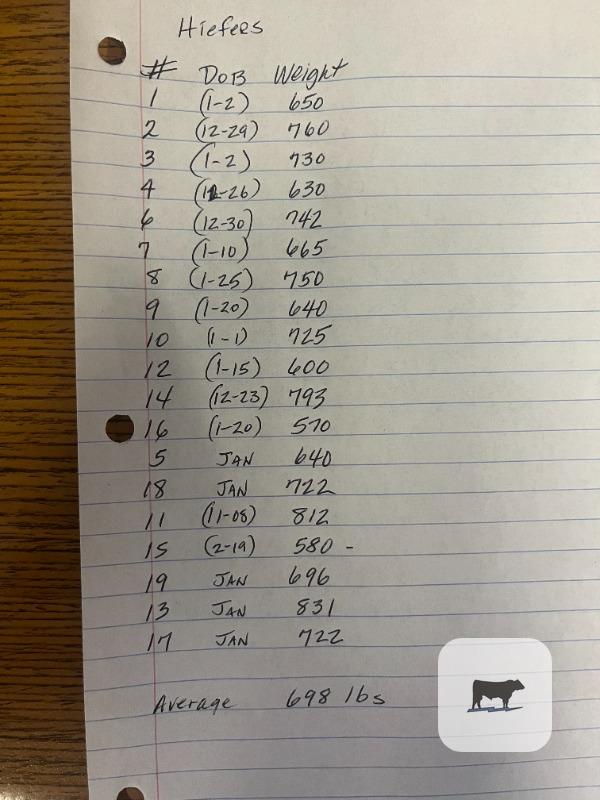 Hiefers
# DOB Weight
1 (1-2) 650
2 (12-29) 760
3 (1-2) 730
4 (12-26) 630
6 (12-30) 742
7 (1-10) 665
8 (1-25) 750
9 (1-20) 640
10 (1-1) 725
12 (1-15) 600
14 (12-23) 793
16 (1-20) 570
5 JAN 640
18 JAN 722
11 (11-08) 812
15 (2-19) 580 -
19 JAN 696
13 JAN 831
17 JAN 722
Average 698 lbs